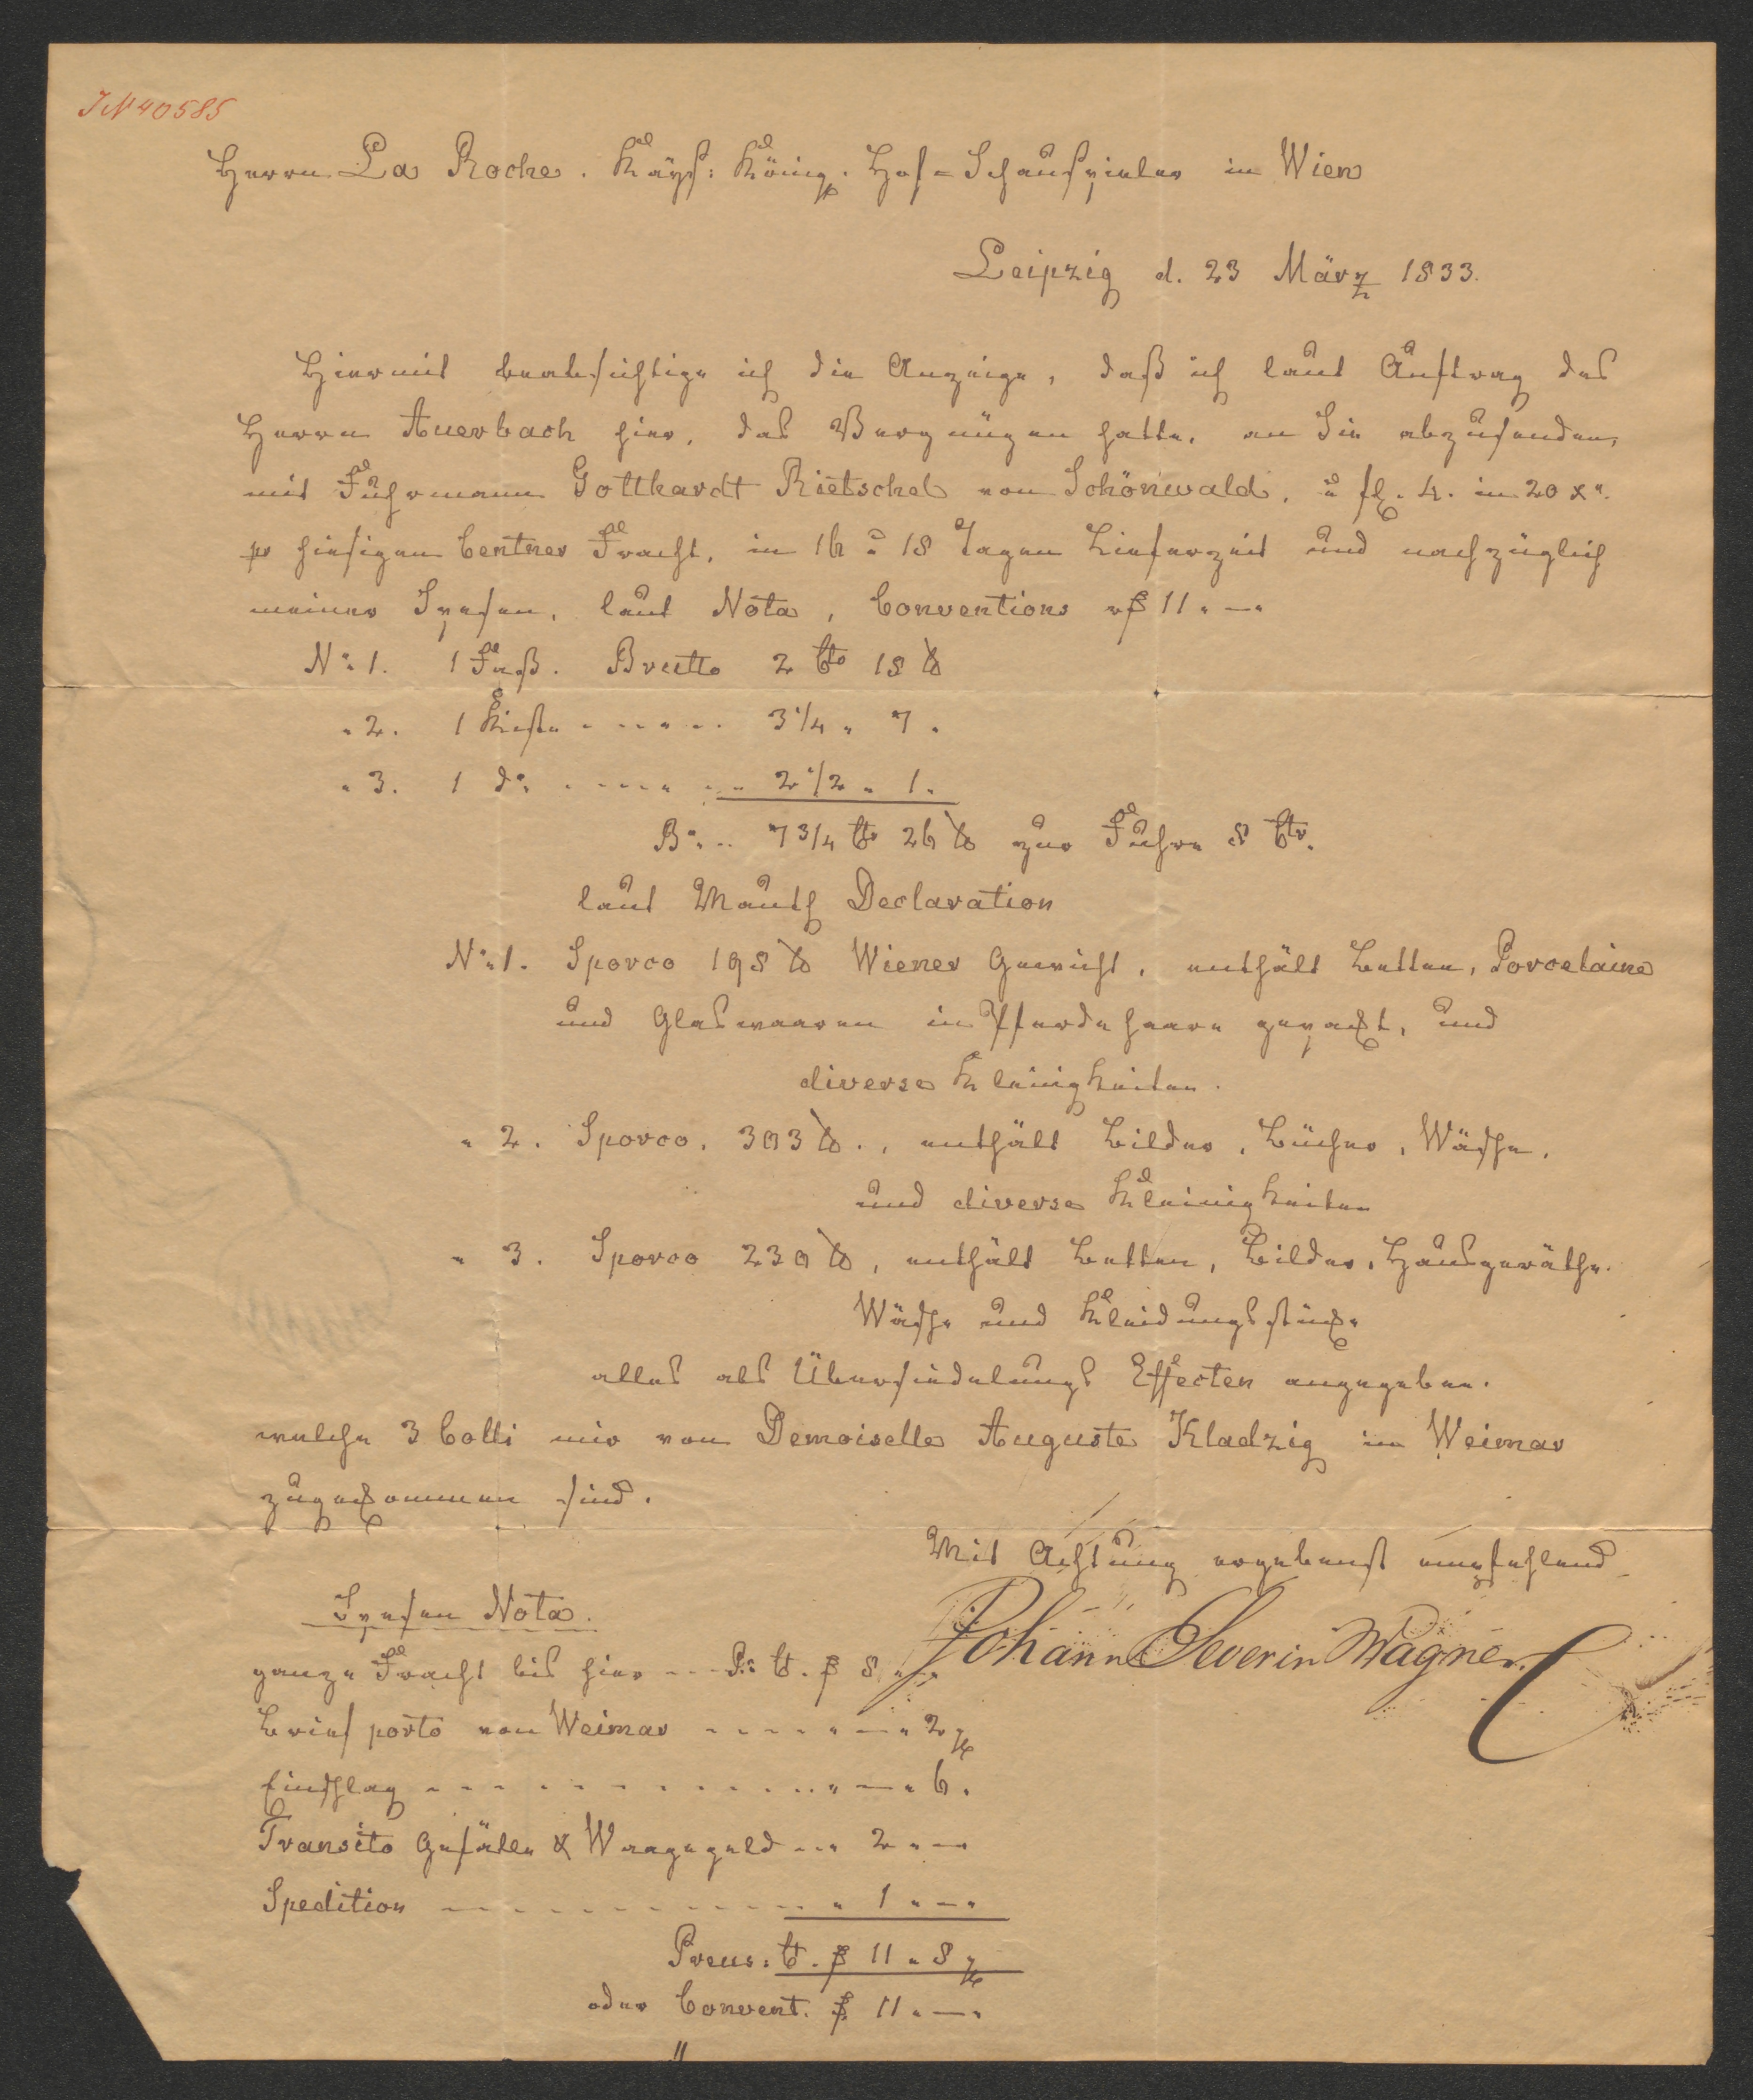 JN 40585
Herrn La Roche. Kays: Königl. Hof-Schauspieler in Wien
Leipzig d. 23 März 1833.
Hiermit beabsichtige ich die Anzeige, daß ich laut Auftrag des
Herrn Auerbach hier, das Vergnügen hatte, an Sie abzusenden,
mit Fuhrmann Gotthardt Rietschel von Schönwald, à fl. 4. in 20 xr.
pr hiesigen Centner Fracht, in 16 à 18 Tagen Lieferzeit und nachzüglich
meiner Spesen, laut Nota, Conventions rß 11 " —"
No 1. 1 Faß. Brutto 2 Ctr 18 ℔
" 2. 1 Kiste - - - - - 3 1/4 " 7 "
" 3. 1 do - - - - - 2 1/2 " 1 "
Bo - 7 3/4 Ctr 26 ℔ zur Fuhre 8 Ctr.
laut Mauth Declaration
No 1. Sporco 198 ℔ Wiener Gewicht, enthält Betten, Porcelaine
und Glaswaaren in Pferdehaare gepackt, und
diverse Kleinigkeiten.
" 2. Sporco. 393 ℔., enthält Bilder, Bücher, Wäsche,
und diverse Kleinigkeiten
" 3. Sporco 239 ℔, enthält Betten, Bilder, Hausgeräthe.
Wäsche und Kleidungsstücke
alles als Übersiedelungs Effecten angegeben.
welche 3 Colli mir von Demoiselle Auguste Kladzig in Weimar
zugekommen sind.
Mit Achtung ergebenst empfehlend
Johann Severin Wagner.
Spesen Nota.
ganze Fracht bis hier - - - Pr: Ct. ß 8 " —"
Brief porto von Weimar - - - - - " — " 2 gr
Einschlag - - - - - - - - - - " — " 6 "
Transito Gefälle & Waagegeld - - " 2 " —
Spedition - - - - - - - - - - " 1 " — "
Preus: Ct. ß 11 " 8 gr
oder Convent. ß 11 " — "